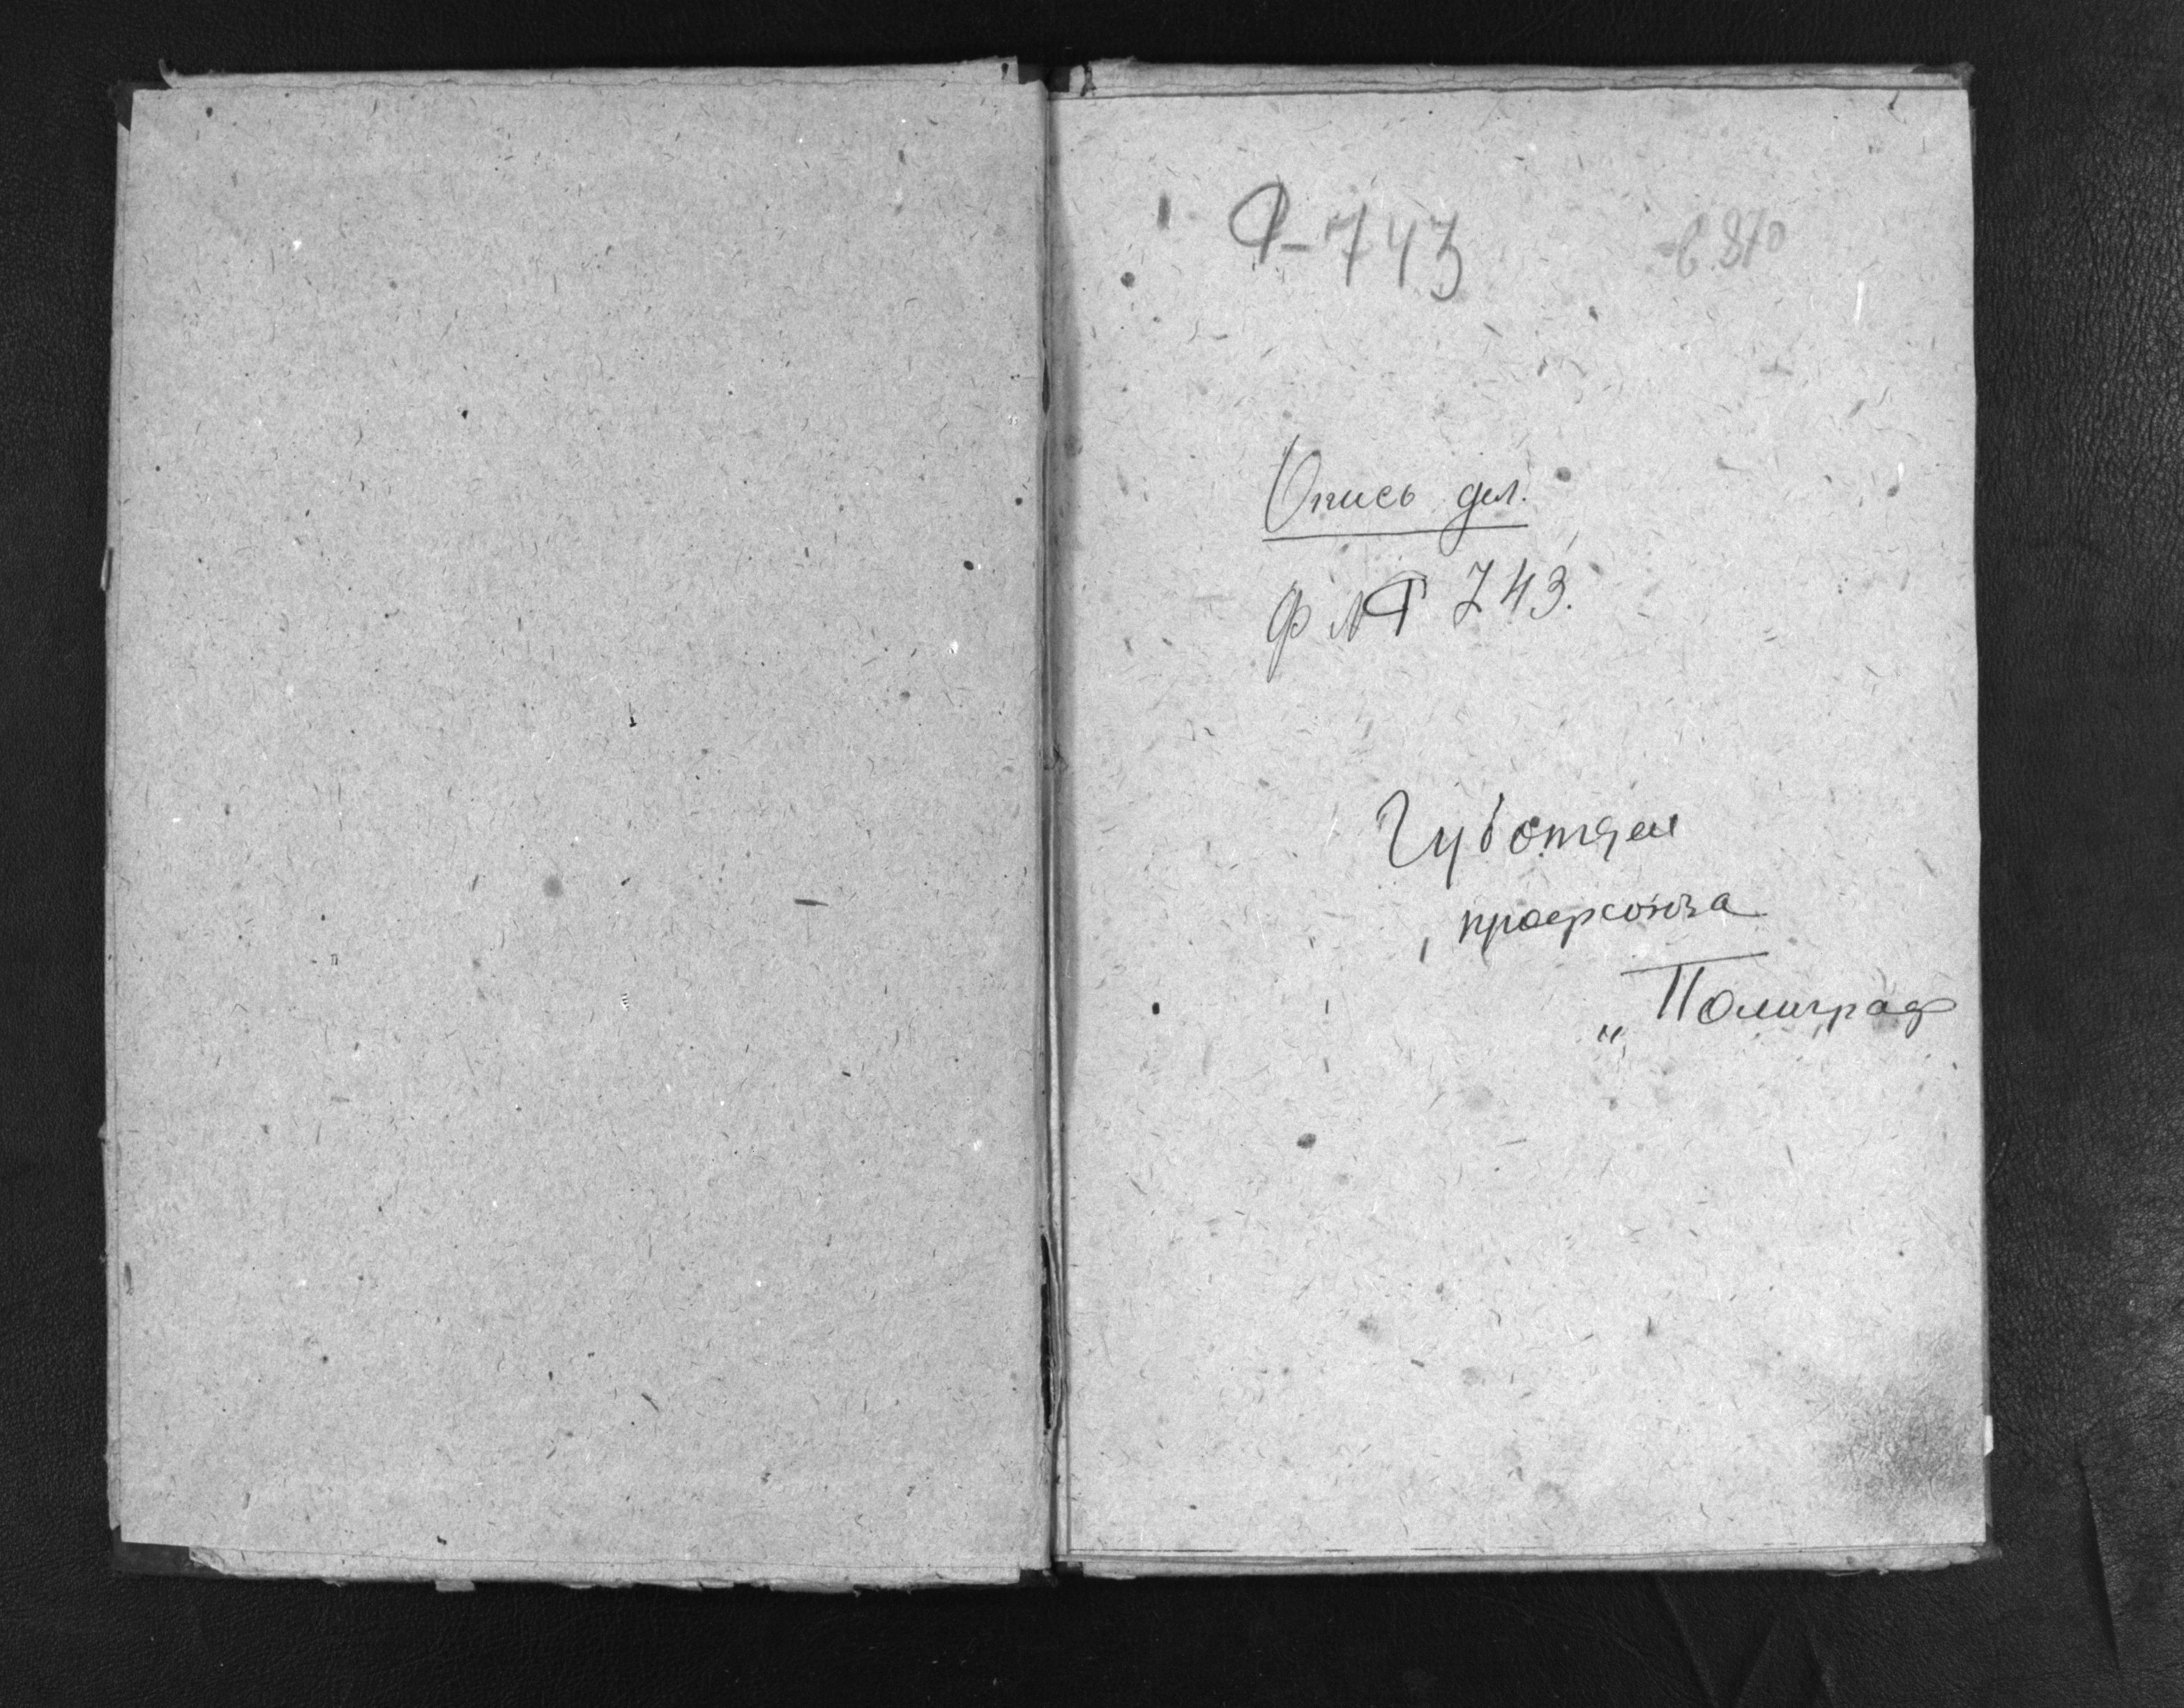 Ф-743
Опись дел.
Ф № 743.
Губотдел
профсоюза
„Полиграф